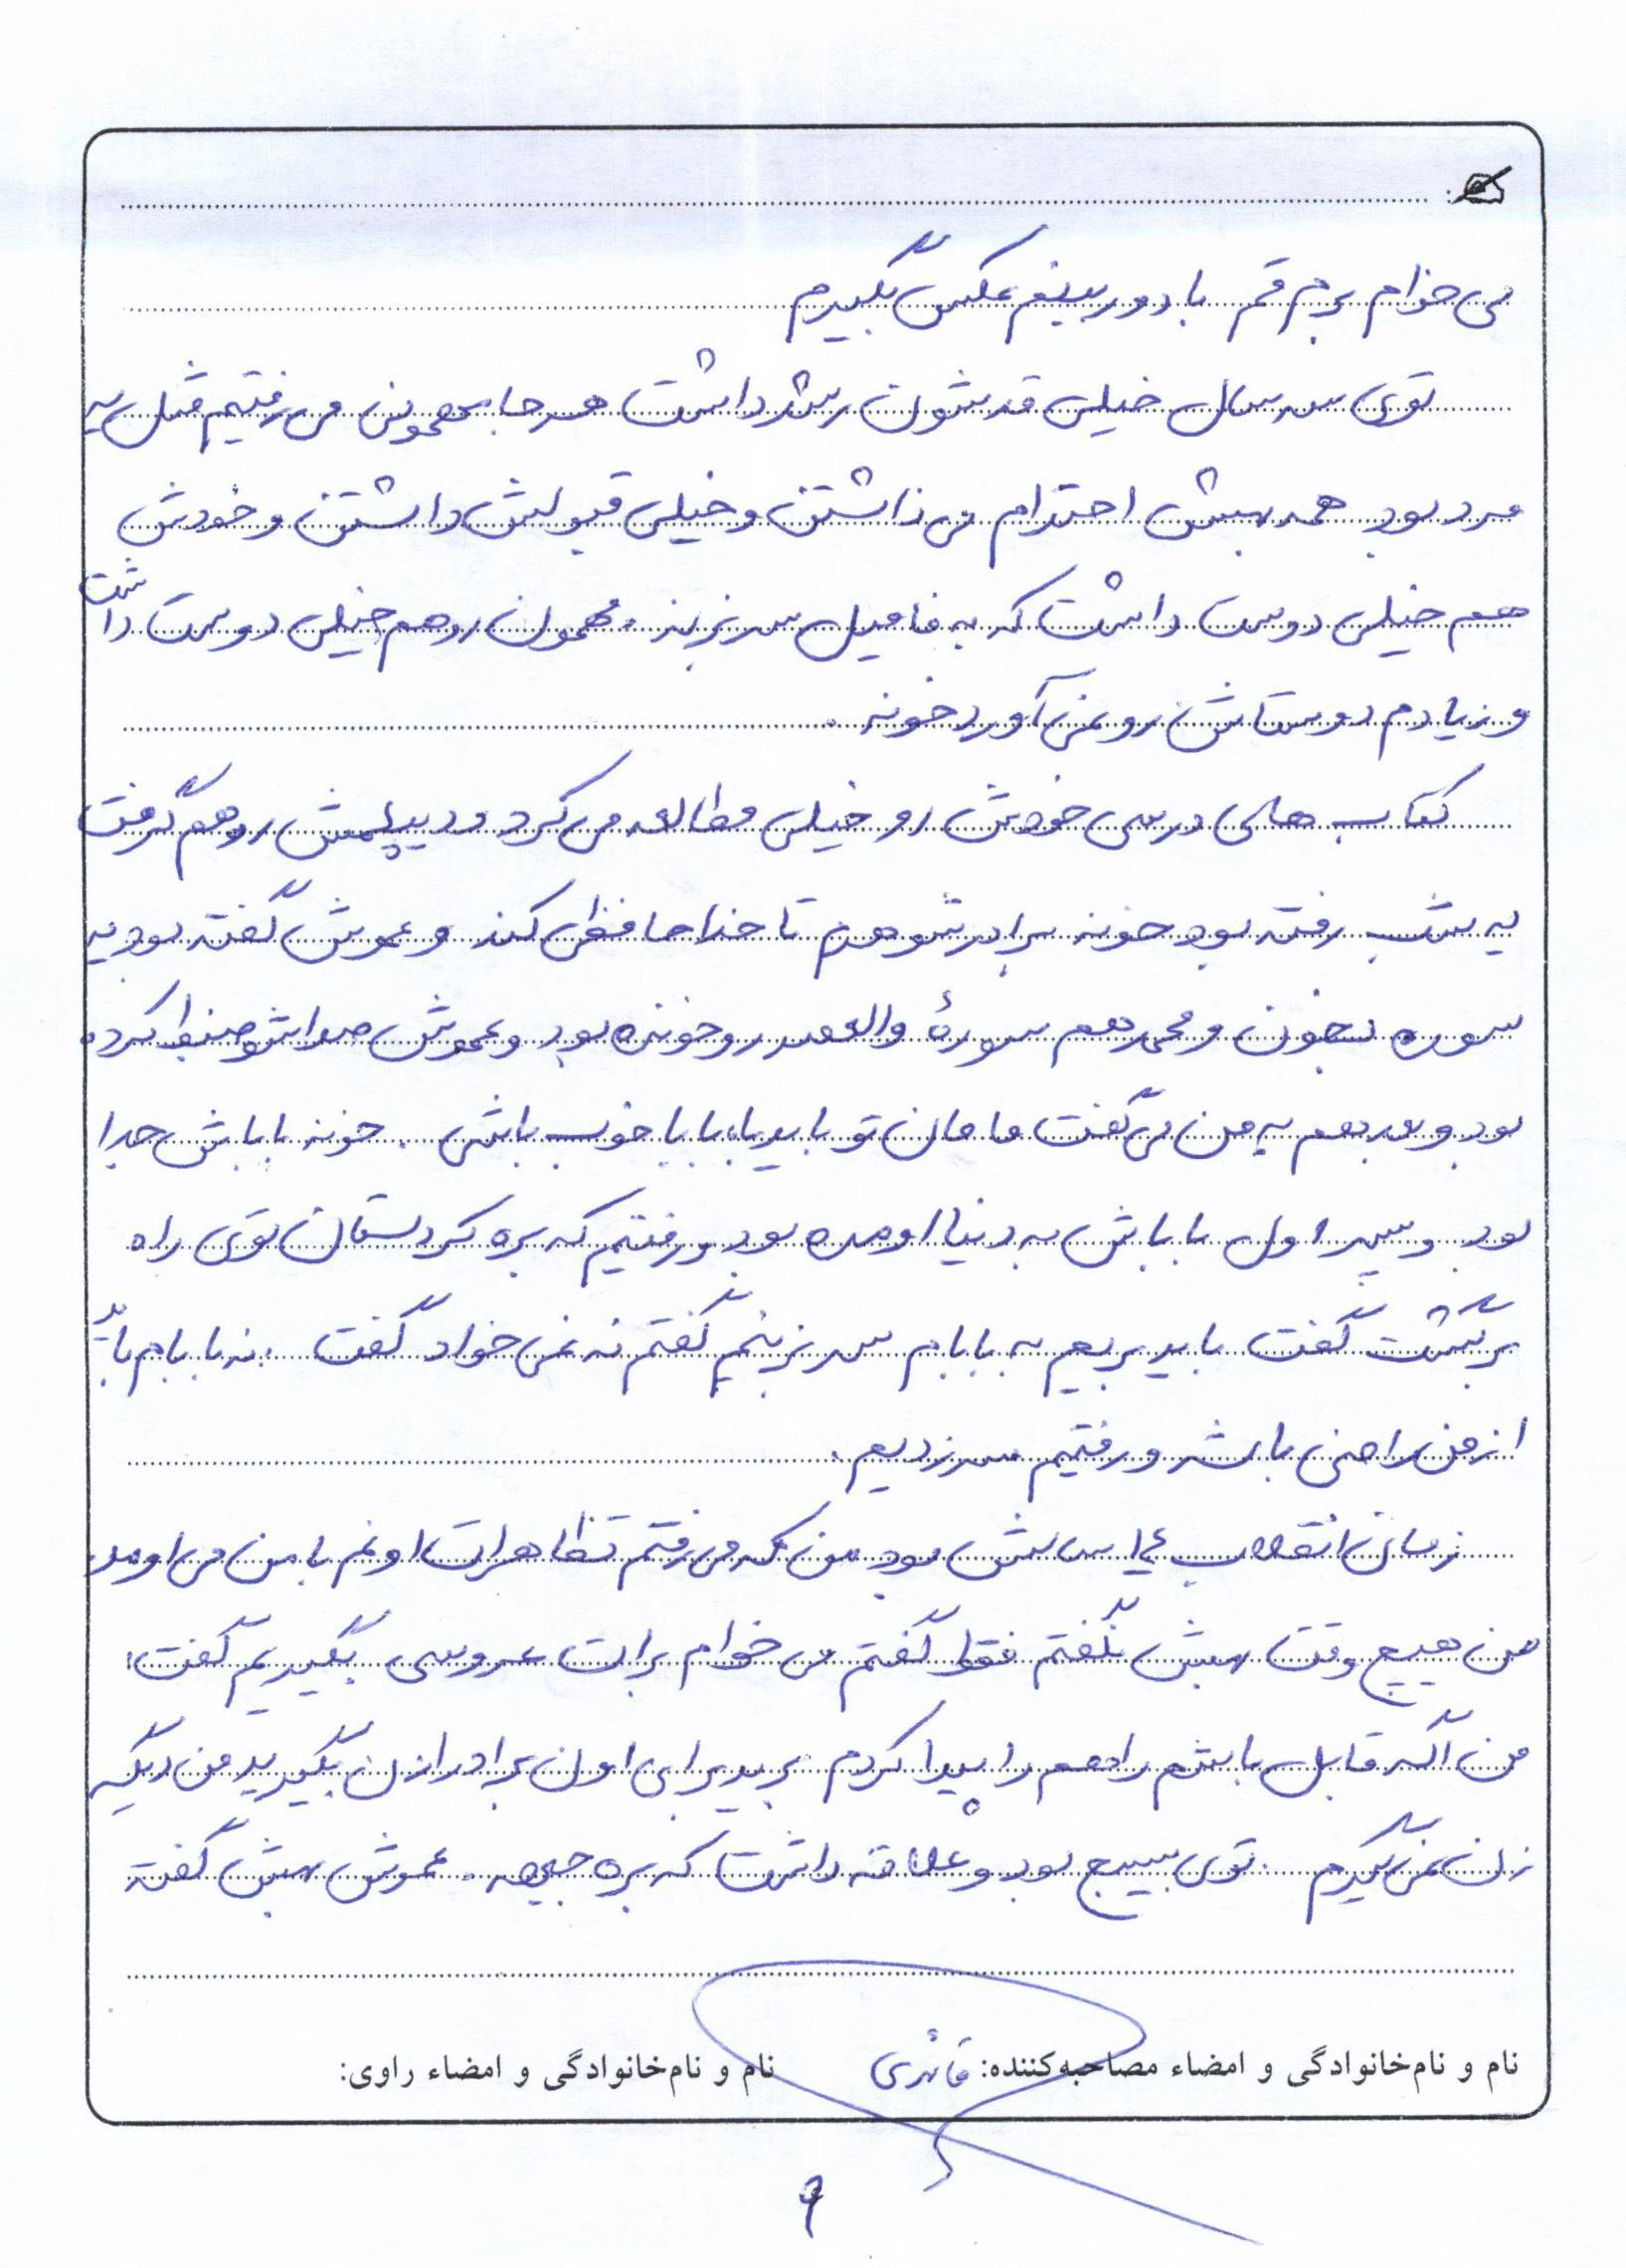 می خوام برم قم با دوربینم عکس بگیرم
توی سه سال خیلی قدشون رشد داشت هر جا مهمونی می رفتیم مثل یه
مرد بود همه بهش احترام می ذاشتن و خیلی قبولش داشتن و خودش
هم خیلی دوست داشت که به فامیل سر بزند. مهمون رو هم خیلی دوست داشت
و زیادم دوستاش رو نمی آورد خونه.
کتاب های درسی خودش رو خیلی مطالعه می کرد و دیپلمش رو هم گرفت
یه شب رفته بود خونه برادر شوهرم تا خداحافظی کند و عموش گفته بود یه
سوره بخون و محمد هم سورهٔ والعصر رو خونده بود و عموش صداشو ضبط کرده
بود و بعد هم به من می گفت مامان تو باید با بابا خوب باشی. خونه باباش جدا
بود و پسر اول باباش به دنیا اومده بود و رفتیم که بره کردستان توی راه
برگشت گفت باید بریم به بابام سر بزنیم گفتم نه نمی خواد گفت: نه بابام باید
از من راضی باشد و رفتیم سر زدیم.
زمان انقلاب ۱۴ سالش بود من که می رفتم تظاهرات اونم با من می اومد.
من هیچ وقت بهش نگفتم فقط گفتم می خوام برات عروسی بگیریم گفت:
من اگه قابل باشم راهم را پیدا کردم برید برای اون برادرا زن بگیرید من دیگه
زن نمی گیرم. توی بسیج بود و علاقه داشت که بره جبهه. عموش بهش گفته
نام و نام‌خانوادگی و امضاء مصاحبه‌کننده: قائدی نام و نام‌خانوادگی و امضاء راوی: